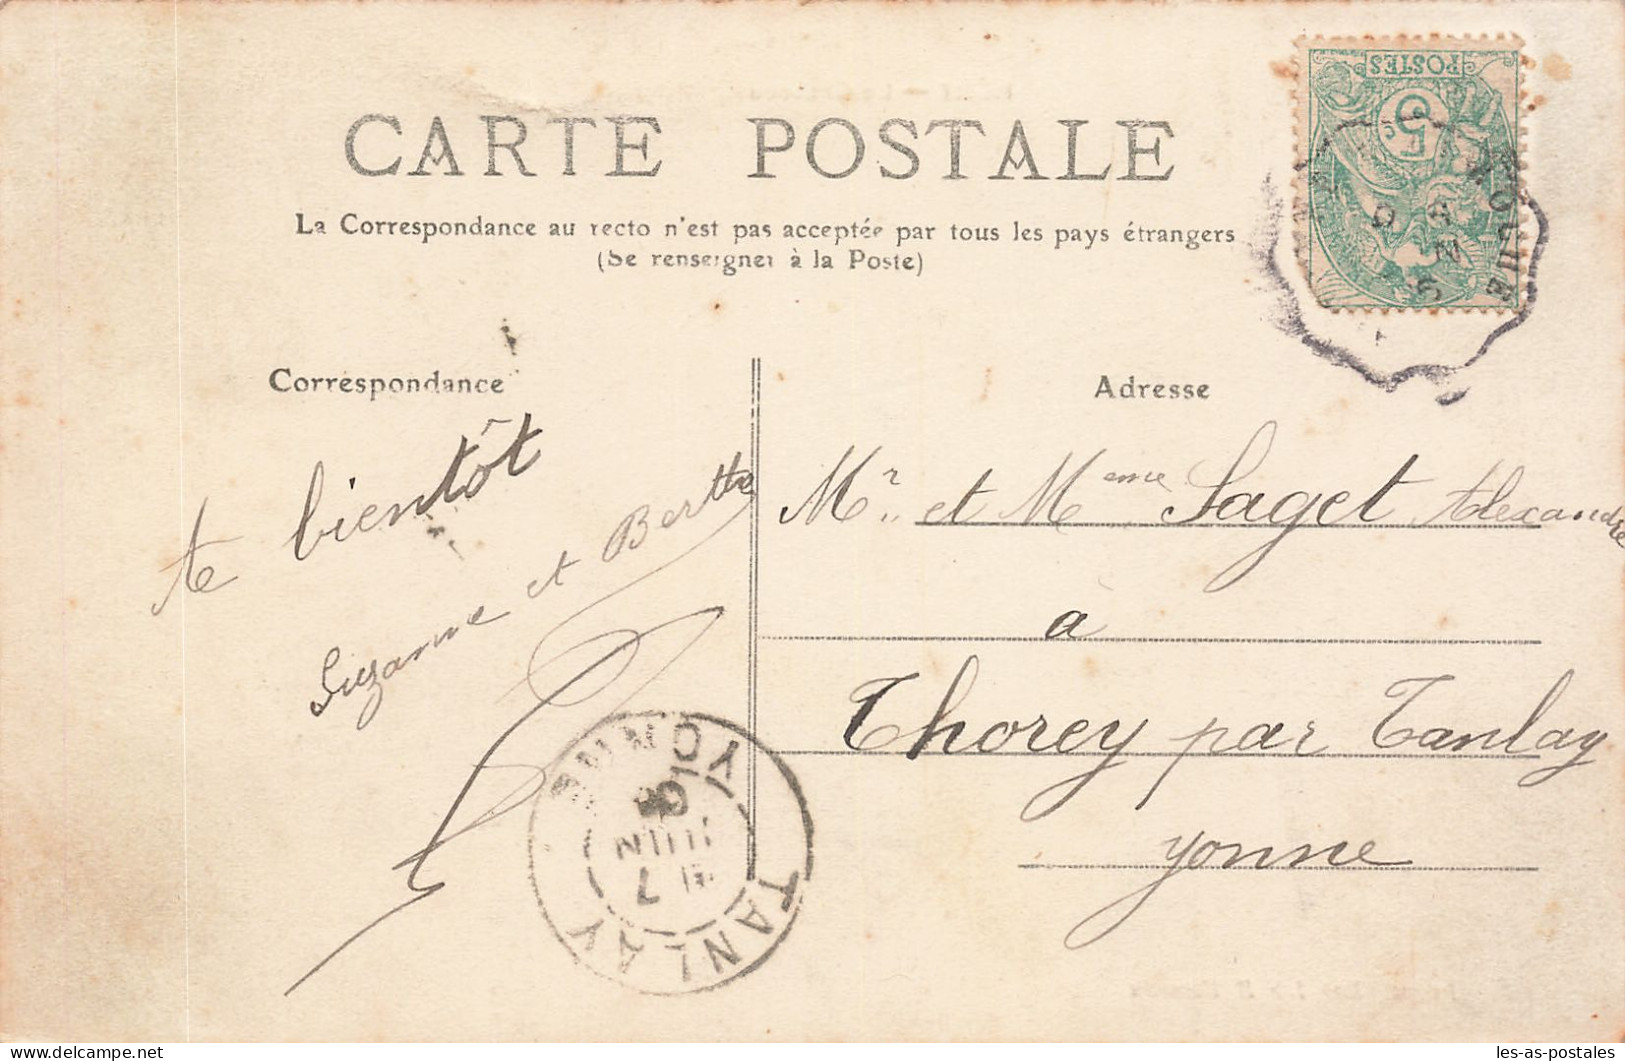 POSTES
5
CARTE POSTALE
La Correspondance au recto n'est pas acceptée par tous les pays étrangers
(Se renseigner à la Poste)
Correspondance
Adresse
A bientôt
Suzanne et Berthe
Mr. et Meme Saget Alexandre
à
Thorey par Tanlay
Yonne
TANLAY
YONNE
7
JUIN
delcampe.net
les-as-postales